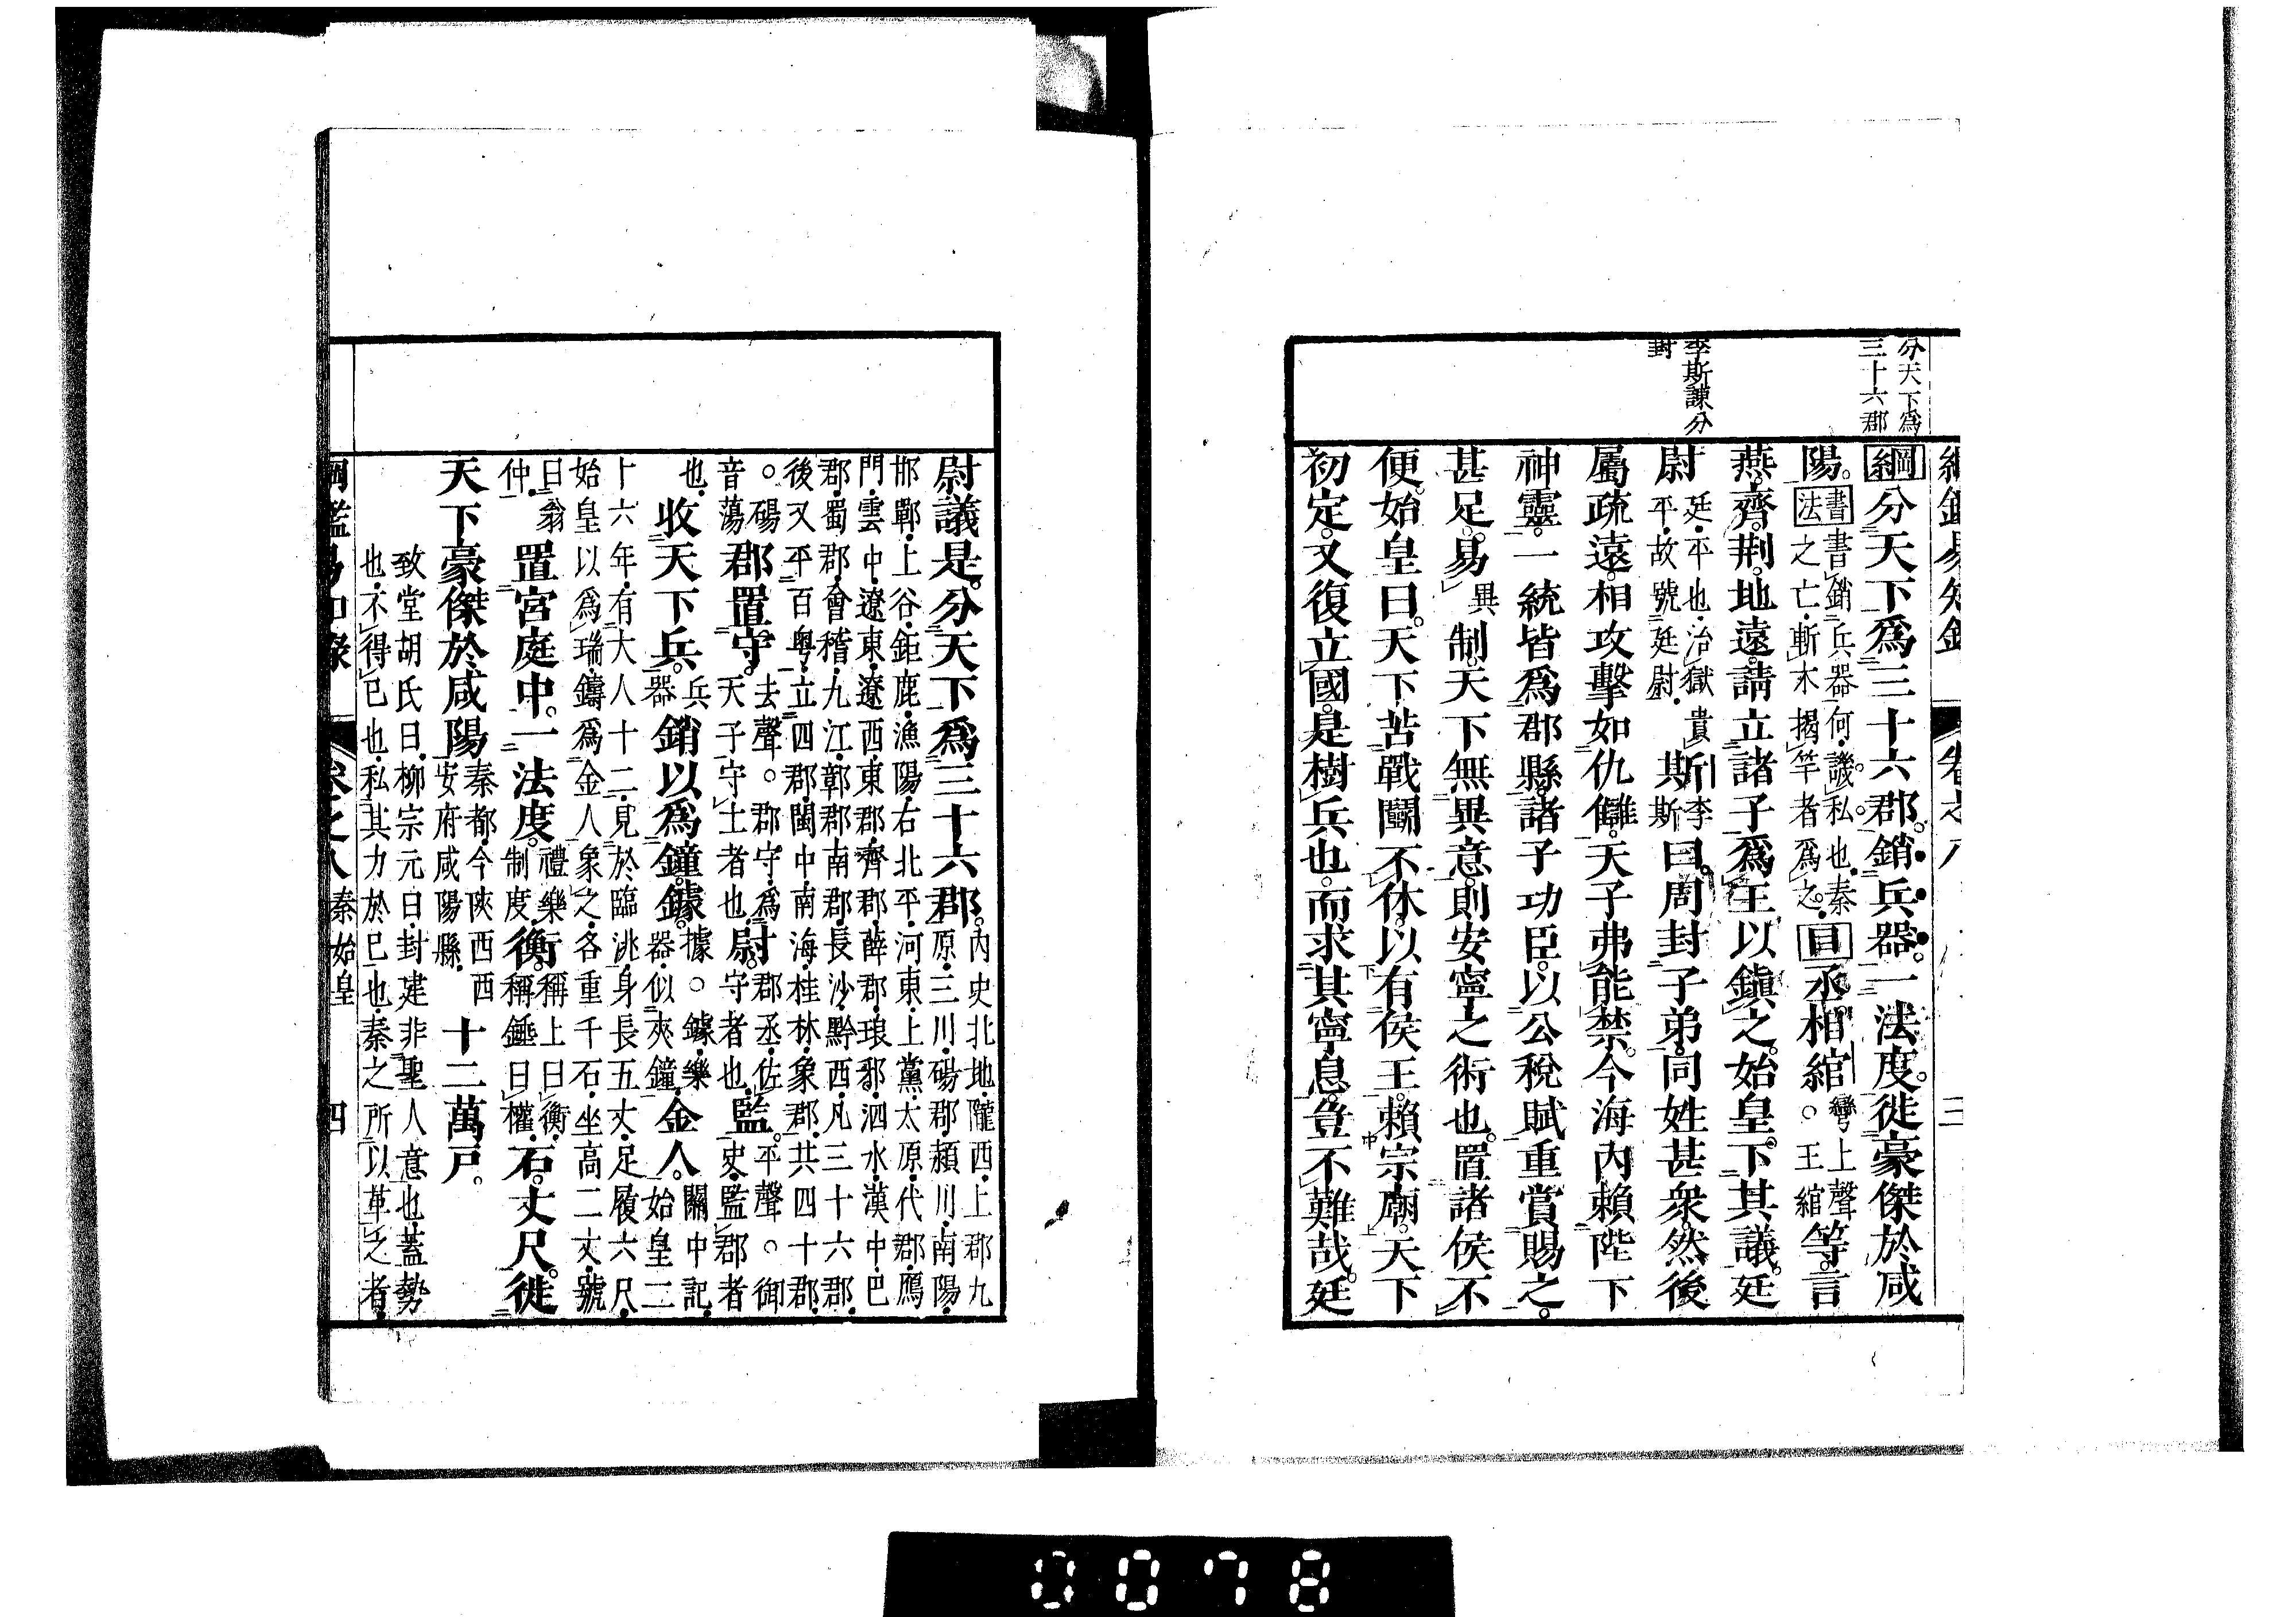 分天下爲
三十六郡
李斯諫分
封
綱鑑易知錄 卷之八 三
綱分天下爲三十六郡銷兵器一法度徙豪傑於咸
陽。書法書銷兵器何譏私也秦之亡斬木揭竿者爲之目丞相綰彎上聲。王綰等言
燕齊荆地遠請立諸子爲王以鎭之始皇下其議廷
尉廷平也治獄貴平故號廷尉斯李斯曰周封子弟同姓甚衆然後
屬疏遠相攻擊如仇讎天子弗能禁今海內賴陛下
神靈一統皆爲郡縣諸子功臣以公稅賦重賞賜之
甚足易異制天下無異意則安寧之術也置諸侯不
便始皇曰天下苦戰鬬不休以有侯王賴宗廟天下
初定又復立國是樹兵也而求其寧息豈不難哉廷
尉議是分天下爲三十六郡內史北地隴西上郡九原三川碭郡潁川南陽
邯鄲上谷鉅鹿漁陽右北平河東上黨太原代郡鴈
門雲中遼東遼西東郡齊郡薛郡琅邪泗水漢中巴
郡蜀郡會稽九江鄣郡南郡長沙黔西凡三十六郡
後又平百粤立四郡閩中南海桂林象郡共四十郡
。碭音蕩郡置守去聲。郡守爲天子守土者也尉郡丞佐守者也監平聲。御史監郡者
也收天下兵兵器銷以爲鐘鐻據。鐻樂器似夾鐘金人關中記始皇二
十六年有大人十二見於臨洮身長五丈足履六尺
始皇以爲瑞鑄爲金人象之各重千石坐高二丈號
曰翁仲置宮庭中一法度禮樂制度衡稱上曰衡稱錘曰權石丈尺徙
天下豪傑於咸陽秦都今陝西西安府咸陽縣十二萬戸
致堂胡氏曰柳宗元曰封建非聖人意也蓋勢
也不得已也私其力於己也秦之所以革之者
綱鑑易知錄 卷之八 秦始皇 四
0078